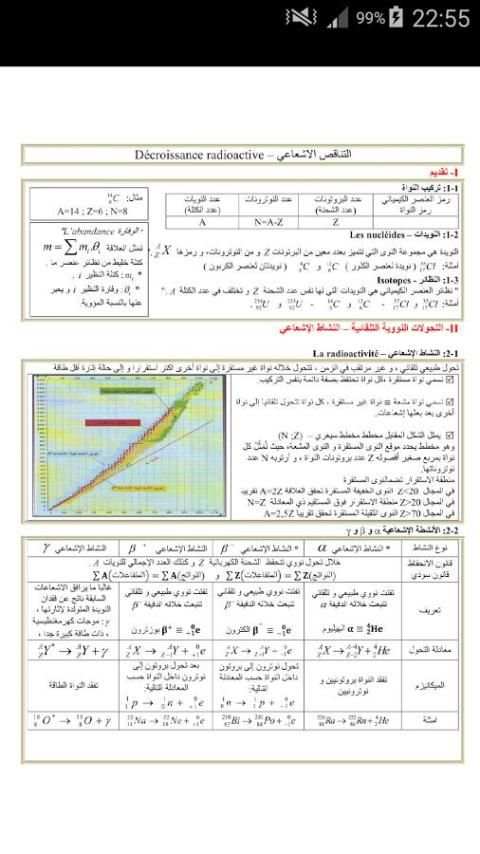 99% 22:55
التناقص الإشعاعي – Décroissance radioactive
I- تقديم
1-1: تركيب النواة
رمز العنصر الكيميائي رمز النواة
عدد البروتونات (عدد الشحنة)
عدد النوترونات
عدد النويات (عدد الكتلة)
Z
N=A-Z
A
مثال: ¹⁴₆C
A=14 ; Z=6 ; N=8
1-2: النويدات – Les nucléides
النويدة هي مجموعة النوى التي تتميز بعدد معين من البروتونات Z و من النوترونات، و رمزها
1-3: النظائر – Isotopes
" نظائر العنصر الكيميائي هي النويدات التي لها نفس عدد الشحنة Z و تختلف في عدد الكتلة A "
- الوفارة L'abundance
تمثل العلاقة m = ∑ mᵢ.θᵢ
كتلة خليط من نظائر عنصر ما .
* mᵢ : كتلة النظير i
* θᵢ : وفارة النظير i و يعبر
عنها بالنسبة المئوية.
II- التحولات النووية التلقائية – النشاط الإشعاعي
2-1: النشاط الإشعاعي – La radioactivité
تحول طبيعي تلقائي ، و غير مرتقب في الزمن ، تتحول خلاله نواة غير مستقرة إلى نواة أخرى أكثر استقرارا و إلى حالة إثارة أقل طاقة
نسمي نواة مستقرة ،كل نواة تحتفظ بصفة دائمة بنفس التركيب.
نسمي نواة مشعة = نواة غير مستقرة ، كل نواة تتحول تلقائيا إلى نواة
أخرى بعد بعثها إشعاعات.
يمثل الشكل المقابل مخطط مخطط سيغري – (N ;Z)
وهو مخطط يحدد موقع النوى المستقرة و النوى المشعة، حيث تُمثَّل كل
نواة بمربع صغير أفصوله Z عدد بروتونات النواة ، و أرتوبه N عدد
نوتروناتها.
منطقة الاستقرار تضم النوى المستقرة
في المجال Z<20 النوى الخفيفة المستقرة تحقق العلاقة A=2Z تقريبا
في المجال Z>20 منطقة الاستقرار فوق المستقيم ذي المعادلة N=Z
في المجال Z>70 النوى الثقيلة المستقرة تحقق تقريبا A=2,5Z
2-2: الأنشطة الإشعاعية α و β و γ
نوع النشاط
* النشاط الإشعاعي α
* النشاط الإشعاعي β⁻
النشاط الإشعاعي β⁺
النشاط الإشعاعي γ
قانون الانحفاظ
قانون سودي
خلال تحول نووي تنحفظ الشحنة الكهربائية Z و كذلك العدد الإجمالي للنويات A
∑Z(المتفاعلات) = ∑Z(النواتج) و ∑A(المتفاعلات) = ∑A(النواتج)
تعريف
تفتت نووي طبيعي و تلقائي
تنبعث خلاله الدقيقة α
α ≡ ⁴₂He الهيليوم
تفتت نووي طبيعي و تلقائي
تنبعث خلاله الدقيقة β⁻
β⁻ ≡ ⁰₋₁e الكترون
تفتت نووي طبيعي و تلقائي
تنبعث خلاله الدقيقة β⁺
بوزيترون
غالبا ما يرافق الإشعاعات
السابقة ناتج عن فقدان
النويدة المتولدة لإثارتها ،
γ : موجات كهرمغنطيسية
، ذات طاقة كبيرة جدا ،
معادلة التحول
الميكانيزم
تفقد النواة بروتونيين و
نوترونيين
تحول نوترون إلى بروتون
داخل النواة حسب المعادلة
التالية:
بعد تحول بروتون إلى
نوترون داخل النواة حسب
المعادلة التالية:
تفقد النواة الطاقة
أمثلة